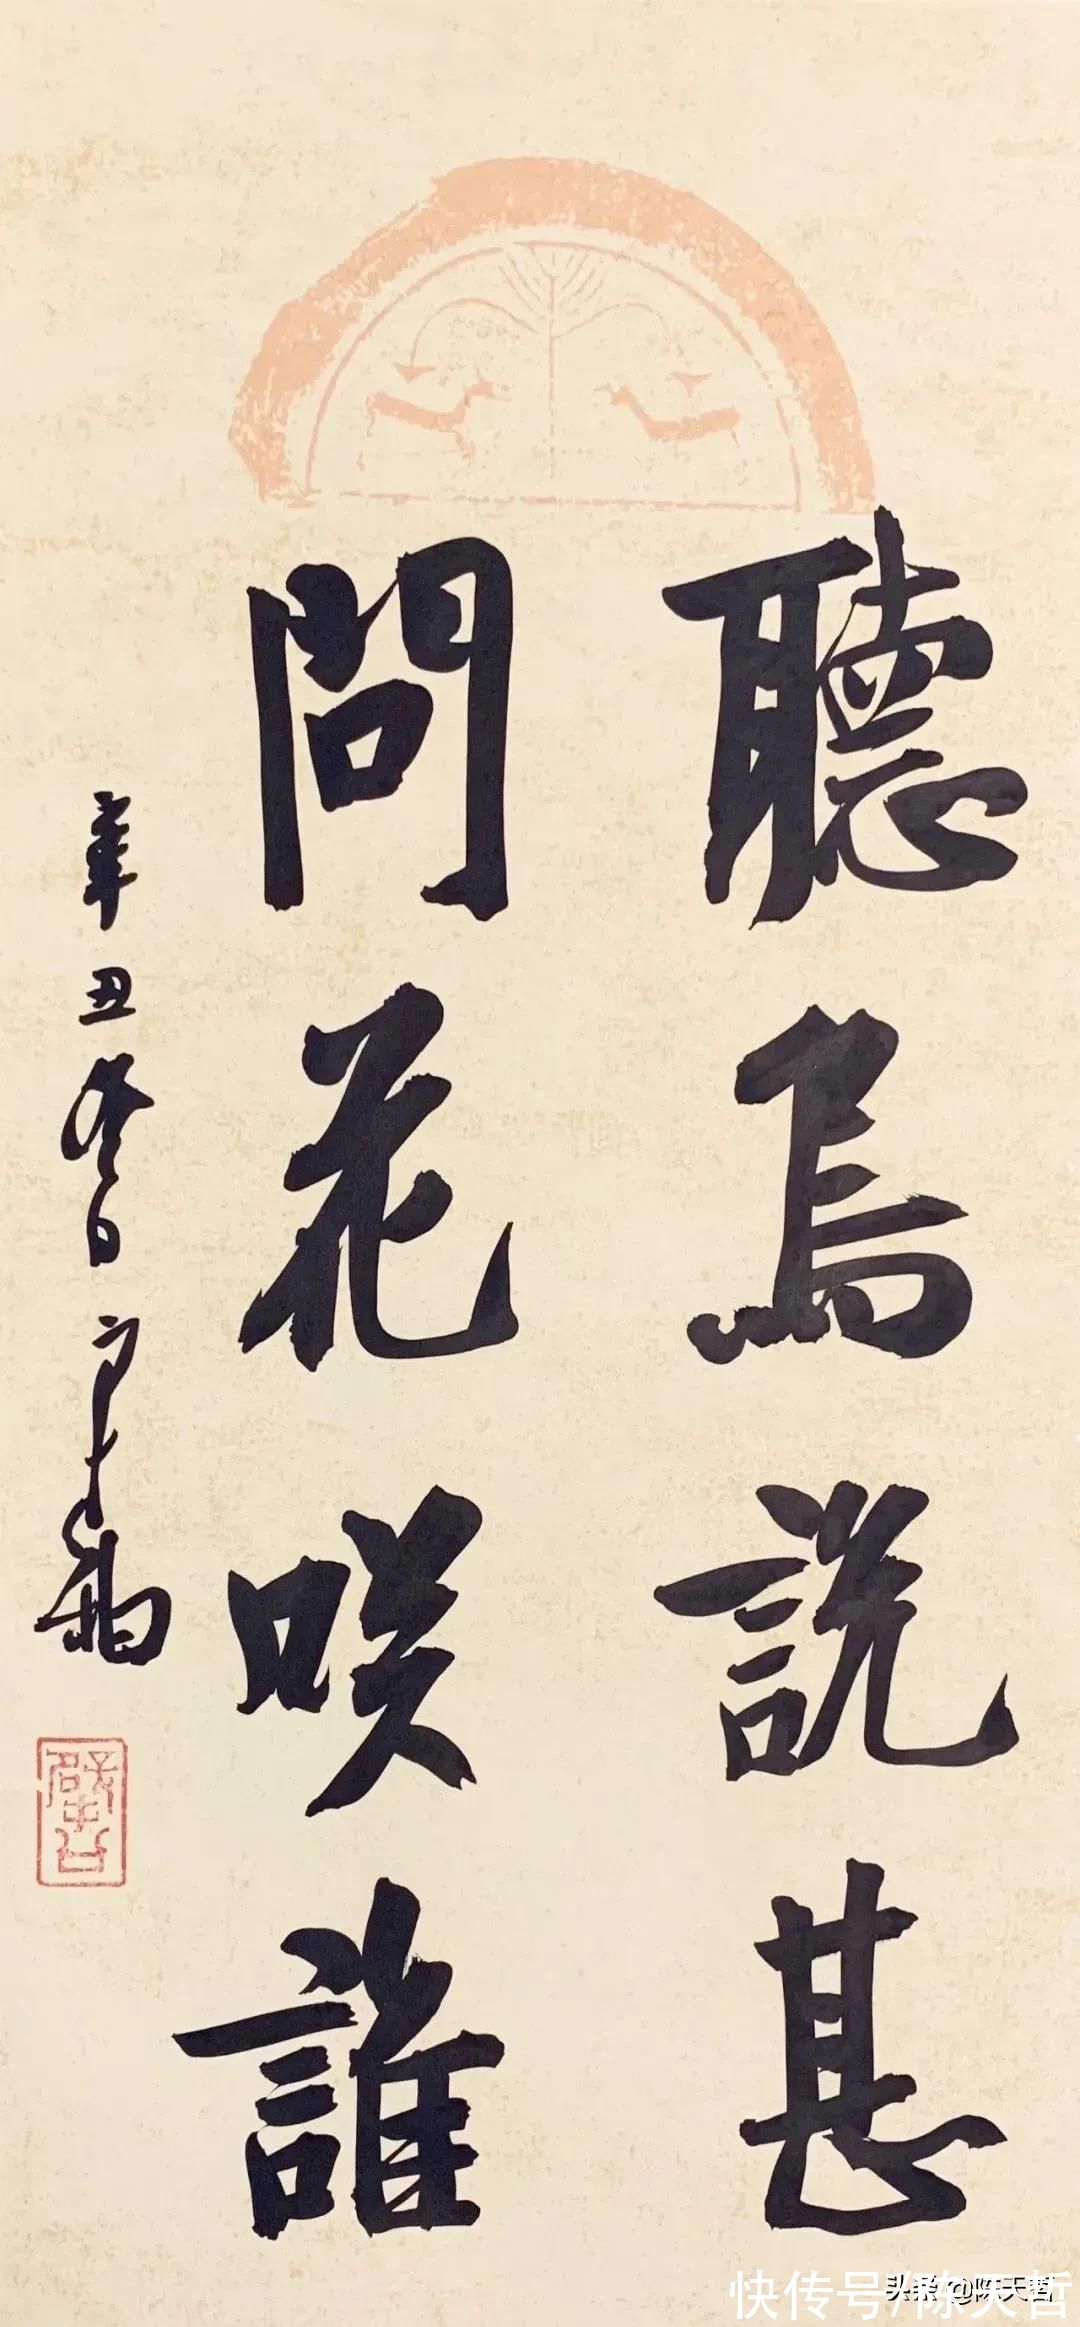 聽鳥說甚
問花咲誰
辛丑冬日
头条 @陈天哲
快传号/陈天哲